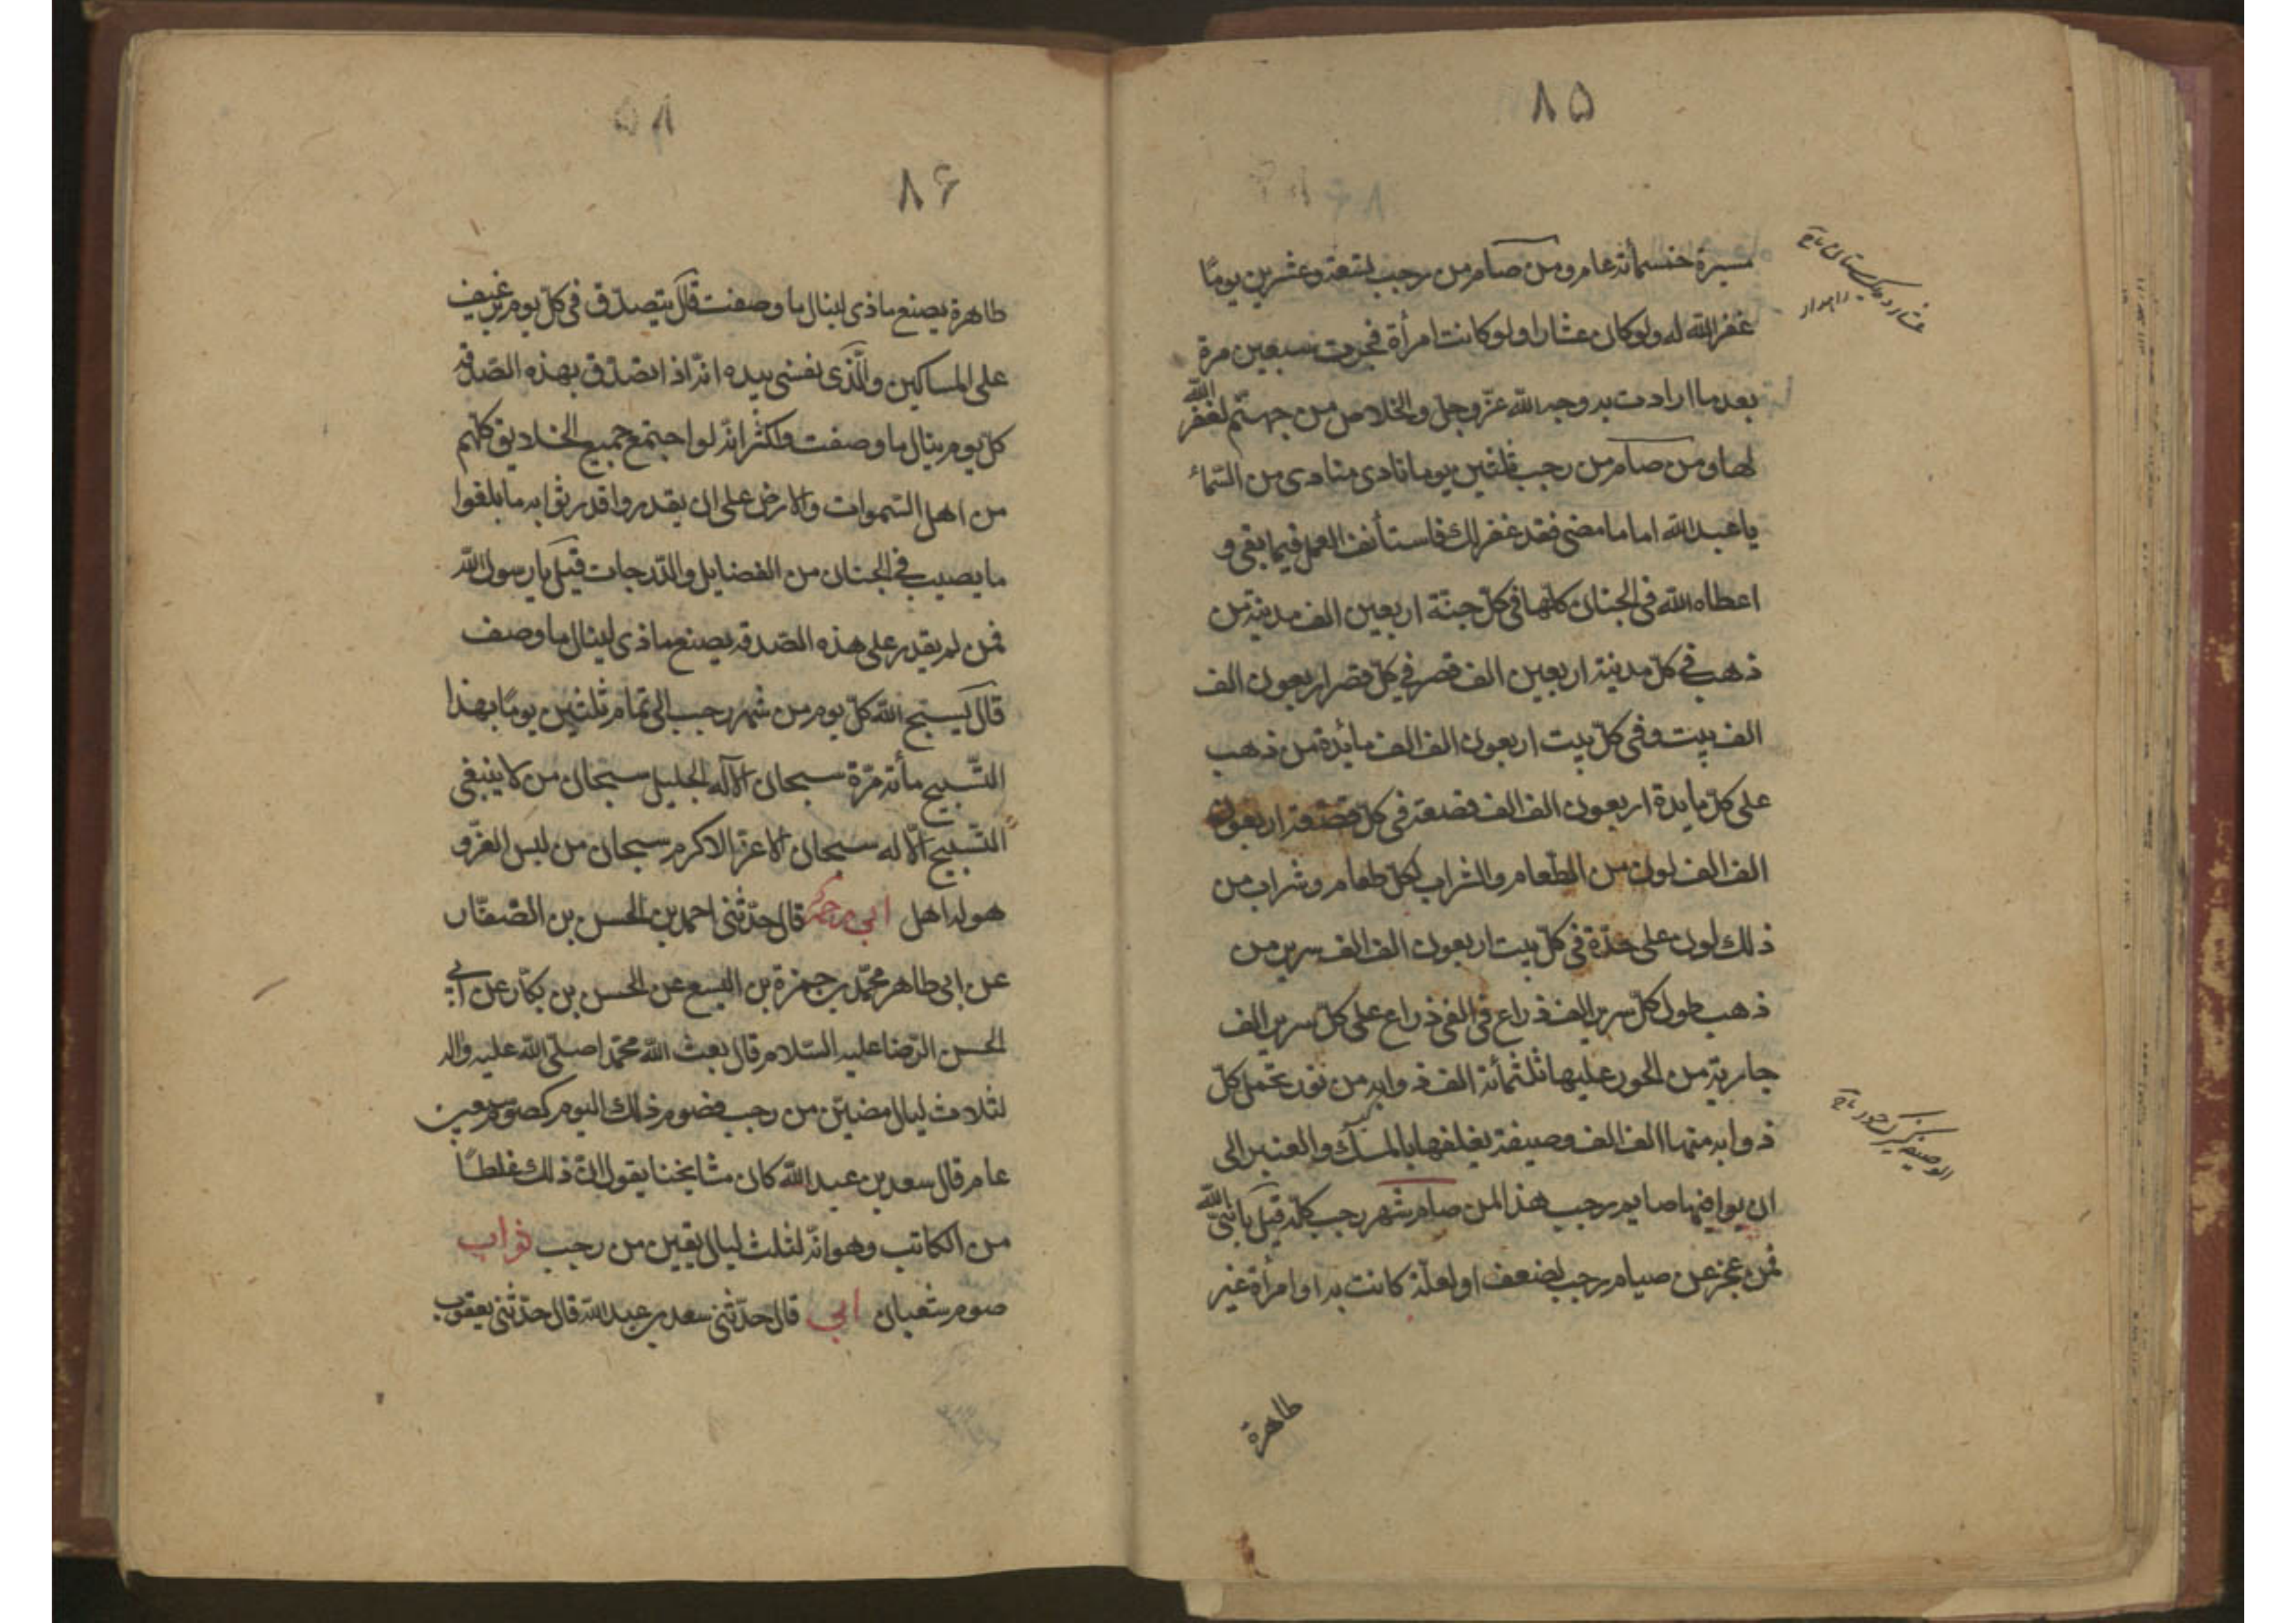 ۸۵
مسيرة خمسمأته عام ومن صام من رجب تسعة وعشرين يومًا
غفر الله له ولو كان عشارا ولو كانت امرأة فجرت سبعين مرة
بعد ما ارادت به وجه الله عزّ وجلّ والخلاص من جهنّم لغفر الله
لها ومن صام من رجب ثلثين يوما نادى منادى من السّماء
يا عبد الله اما ما مضى فقد غفر لك فاستأنف العمل فيما بقى و
اعطاه الله فى الجنان كلّها فى كلّ جنّة اربعين الف مدينة من
ذهب فى كلّ مدينة اربعين الف قصر فى كلّ قصر اربعون الف
الف بيت وفى كلّ بيت اربعون الف الف مائدة من ذهب
على كلّ مايدة اربعون الف الف قصعة فى كلّ قصعة اربعون
الف الف لون من الطّعام والشراب لكلّ طعام وشراب من
ذلك لون على حدّة فى كلّ بيت اربعون الف الف سرير من
ذهب طول كلّ سرير الف ذراع فى الفى ذراع على كلّ سرير الف
جارية من الحور عليها ثلثمأته الف ذوابه من نور تحمل كلّ
ذوابه منها الف الف وصيفة يغلفها بالمسك والعنبر الى
ان يوافيها صايم رجب هذا لمن صام شهر رجب كلّه قيل يا نبىّ الله
فمن عجز عن صيام رجب لضعف او لعلّة كانت به او امرأة غير
طاهرة
۸۶
طاهرة يصنع ماذى لينال ما وصفت قال يتصدّق فى كلّ يوم برغيف
على المساكين والّذى نفسى بيده انّه اذا تصدّق بهذه الصّدقة
كلّ يوم ينال ما وصفت واكثر انّه لو اجتمع جميع الخلايق كلّهم
من اهل السّموات والارض على ان يقدروا قدر ثوابه ما بلغوا
ما يصيب فى الجنان من الفضايل والدّرجات قيل يا رسول الله
فمن لم يقدر على هذه الصّدقه يصنع ماذى لينال ما وصف
قال يسبّح الله كلّ يوم من شهر رجب الى تمام ثلثين يومًا بهذا
التّسبيح مأته مرّة سبحان الاله الجليل سبحان من لا ينبغى
التّسبيح الّا له سبحان الاعزّ الاكرم سبحان من لبس العزّ و
هو له اهل ابى ره قال حدّثنى احمد بن الحسن بن الصّفّار
عن ابى طاهر محمّد بن حمزة بن اليسع عن الحسن بن بكّار عن ابى
الحسن الرّضا عليه السّلام قال بعث الله محمّدا صلّى الله عليه واله
لثلاث ليال مضين من رجب فصوم ذلك اليوم كصوم سبعين
عام قال سعد بن عبد الله كان مشايخنا يقول انّ ذلك غلطًا
من الكاتب وهو انّه لثلث ليال بقين من رجب ثواب
صوم شعبان ابى قال حدّثنى سعد بن عبد الله قال حدّثنى يعقوب